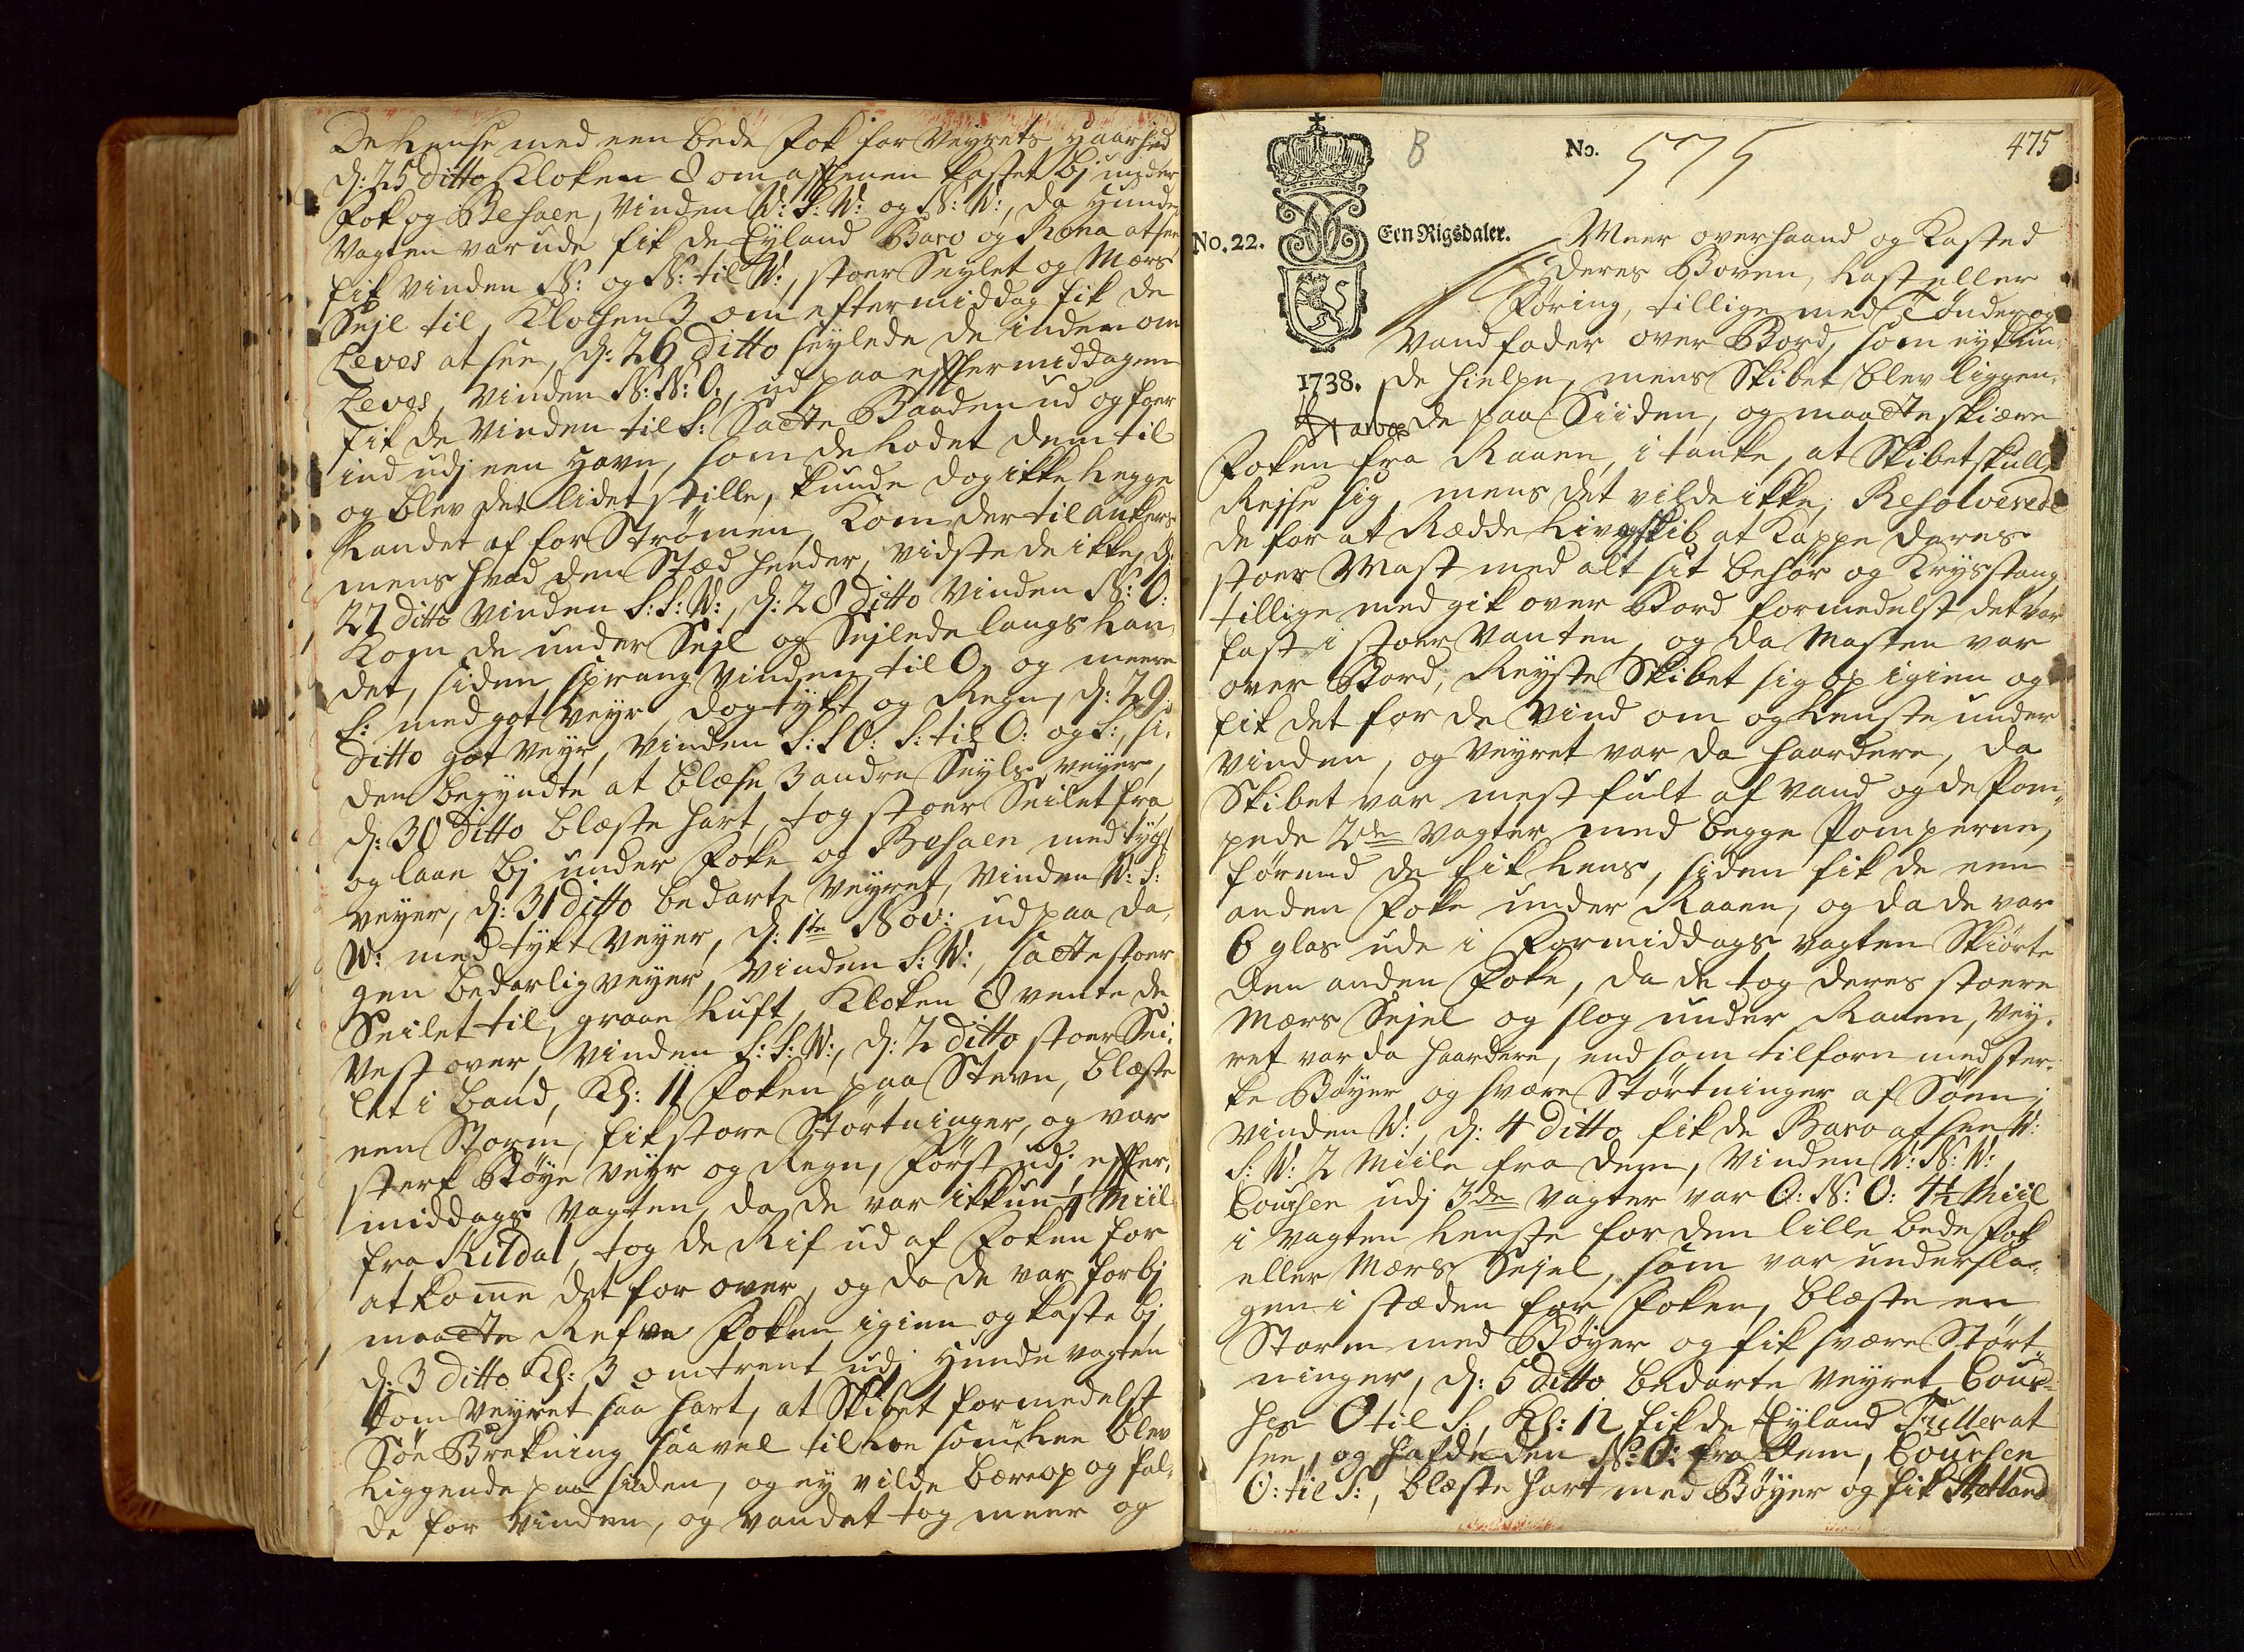 De lense med een bede Fok for Veyrets Haarhed
d: 25 ditto Kloken 8 om afftenen kastet bj under
Fok og Besaen, Vinden V: S: V: og N: V:, da Hunde
Vagten var ude fik de Eyland Baro og Rona at see
fik Vinden N: og N: til V:, stoer Seylet og Mers
Sejl til, Klochen 3 om eftermiddag fik de
Leves at see, d: 26 ditto seylede de inden om
Leves, Vinden N: N: O:, ud paa efftermiddagen
fik de Vinden til S: Sadte Baaden ud og foer
ind udj een Havn, som de Lodet dem til
og blev det lidet stille, kunde dog ikke legge
Landet af for Strømen, kom der til ankers
mens hvad den Stæd heeder, vidste de ikke, d:
27 ditto Vinden S: S: V:, d: 28 ditto Vinden N: O:
Kom de under Sejl og Sejlede langs Lan-
det, siden sprang Vinden til O, og meere
S: med got Veyr, dog tykt og Regn, d: 29
ditto got Veyr, Vinden S: S O: S: til O: og S:, si-
den begyndte at blæse 3 andre Seyls veyer,
d: 30 ditto blæste hart, tog stoer Seilet fra
og laae bj under Foke og Besaen med tygt
veyer, d: 31 ditto bedarte Veyret, Vinden V: S:
V: med tykt Veyer, d: 1te Nov: ud paa da-
gen bedarlig veyer, Vinden S: V:, sadte stoer
Seilet til, graae Luft, Kloken 8 vente de
Vest over, Vinden S: S: V:, d: 2 ditto stoer Sei-
let i Band, Kl: 11 Foken paa Stevn, blæste
een Storm, fik store Størtninger, og var
sterk Bøye Veyr og Regn, først udj effter-
middags Vagten, da de var ikkun 4 Miil
fra Kildal, tog de Rif ud af Foken for
at komme det for over, og da de var forbj
maadte Refve Foken igien og kaste bj
d: 3 ditto Kl: 3 omtrent udj Hunde vagten
kom Veyret saa hart, at Skibet formedelst
Søe Brekning saavel til Luv som i Lee blev
Liggende paa siden, og ey vilde bære op og fal-
de for Vinden, og Vandet tog meer og
B
No. 575
475
No. 22.
Een Rigsdaler.
1738.
Meer overhaand og Kasted
deres Boven, Last eller
Føring, tillige med Tønder og
Vandfader over Bord, som ey kun-
de hielpe, mens Skibet blev liggen-
de paa Siiden, og maadte skiære
Foken fra Raaen, i tanke, at Skibet skulle
Rejse sig, mens det vilde ikke, Resolverede
de for at Rædde Liv og Skib at Kappe deres
stoer Mast med alt sit behør og Krysstang
tillige med gik over Bord formedelst det var
fast i stoer Vanten, og da Masten var
over Bord, Reyste Skibet sig op igien og
fik det for de Vind om og lenste under
Vinden, og Veyret var da haardere, da
Skibet var mest fult af Vand og de Pom-
pede 2de Vagter med begge Pomperne,
førend de fik lens, siden fik de een
anden Foke under Raaen, og da de var
6 glas ude i Formiddags vagten Skiørte
den anden Foke, da de tog deres stoere
Mers Sejel og slog under Raaen, Vey-
ret var da haardere, end som tilforn med ster-
ke Bøyer og svære Størtninger af Søen,
Vinden V:, d: 4 ditto fik de Baro at see V:
S: V: 2 Miile fra dem, Vinden V: N: V:,
Coursen udj 3de Vagter var O: N: O: 4½ Miil
i Vagten lenste for den lille bede Fok
eller Mers Sejel, som var undersla-
gen i stæden for Foken, blæste en
Storm med Bøyer og fik svære Størt-
ninger, d: 5 ditto bedarte Veyret, Cour-
sen O til S:, Kl: 12 fik de Eyland Fuller at
see, og hafde den N: O: fra dem, Coursen
O: til S:, blæste hart med Bøyer og fik Hetland